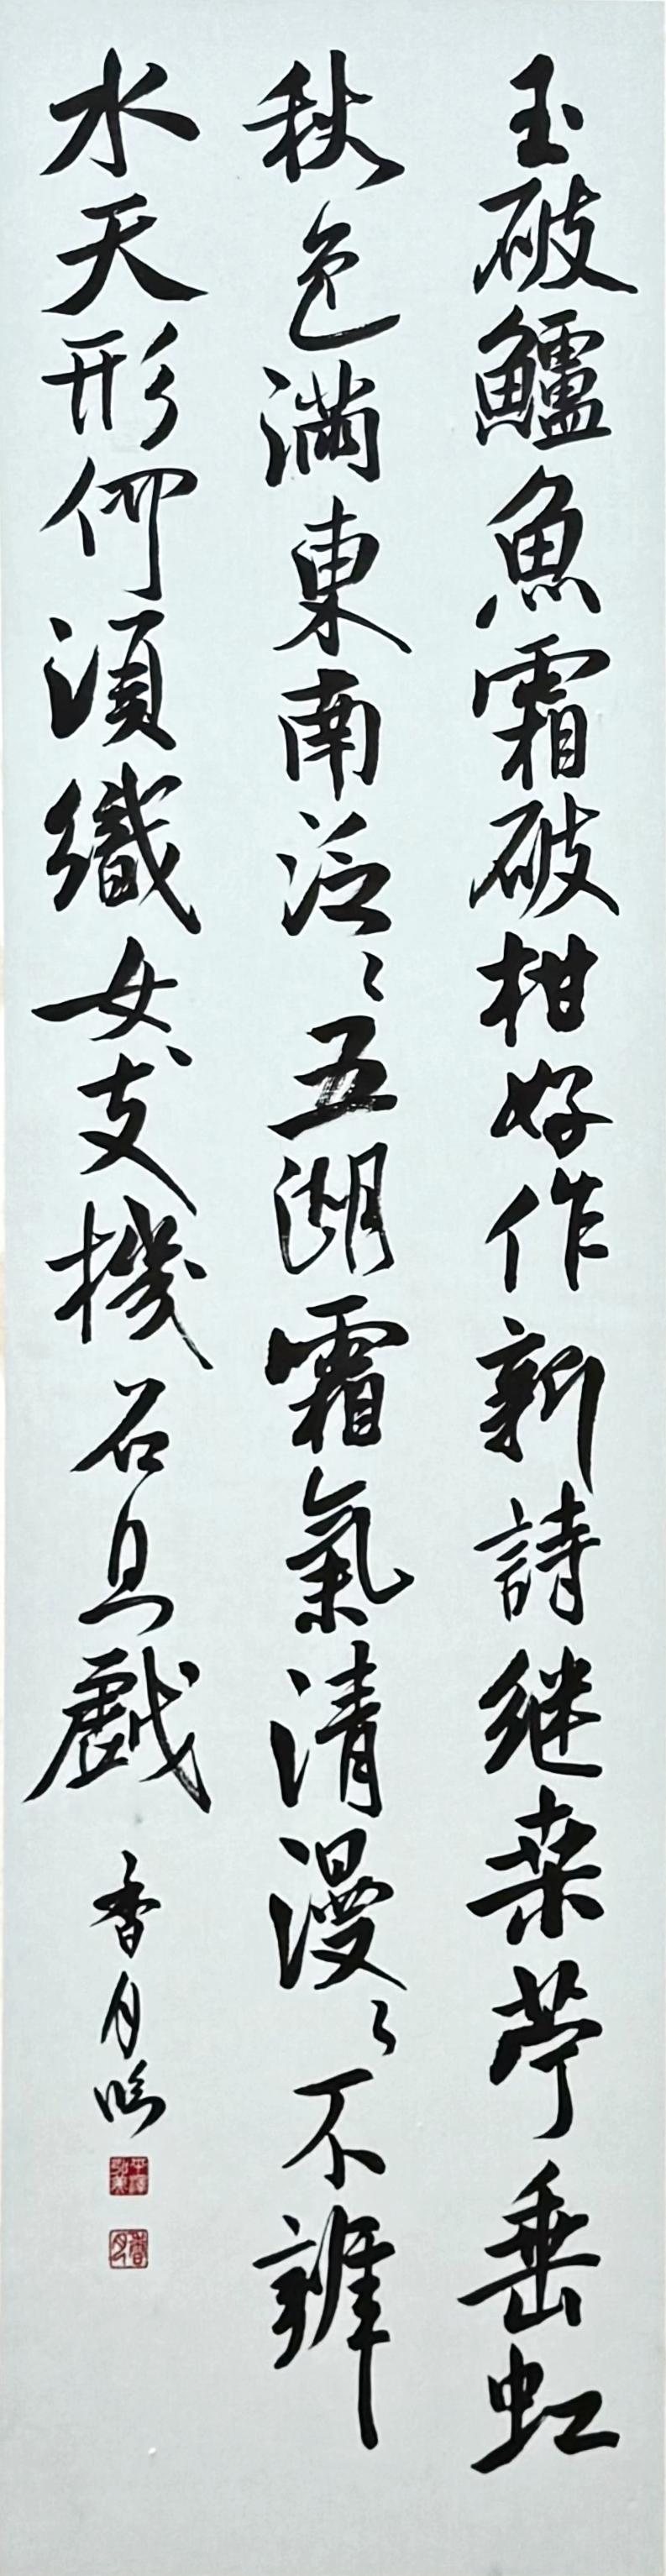 玉破鱸魚霜破柑好作新詩継桑苧垂虹
秋色満東南泛〻五湖霜氣清漫〻不辨
水天形何須織女支機石且戯
香月臨